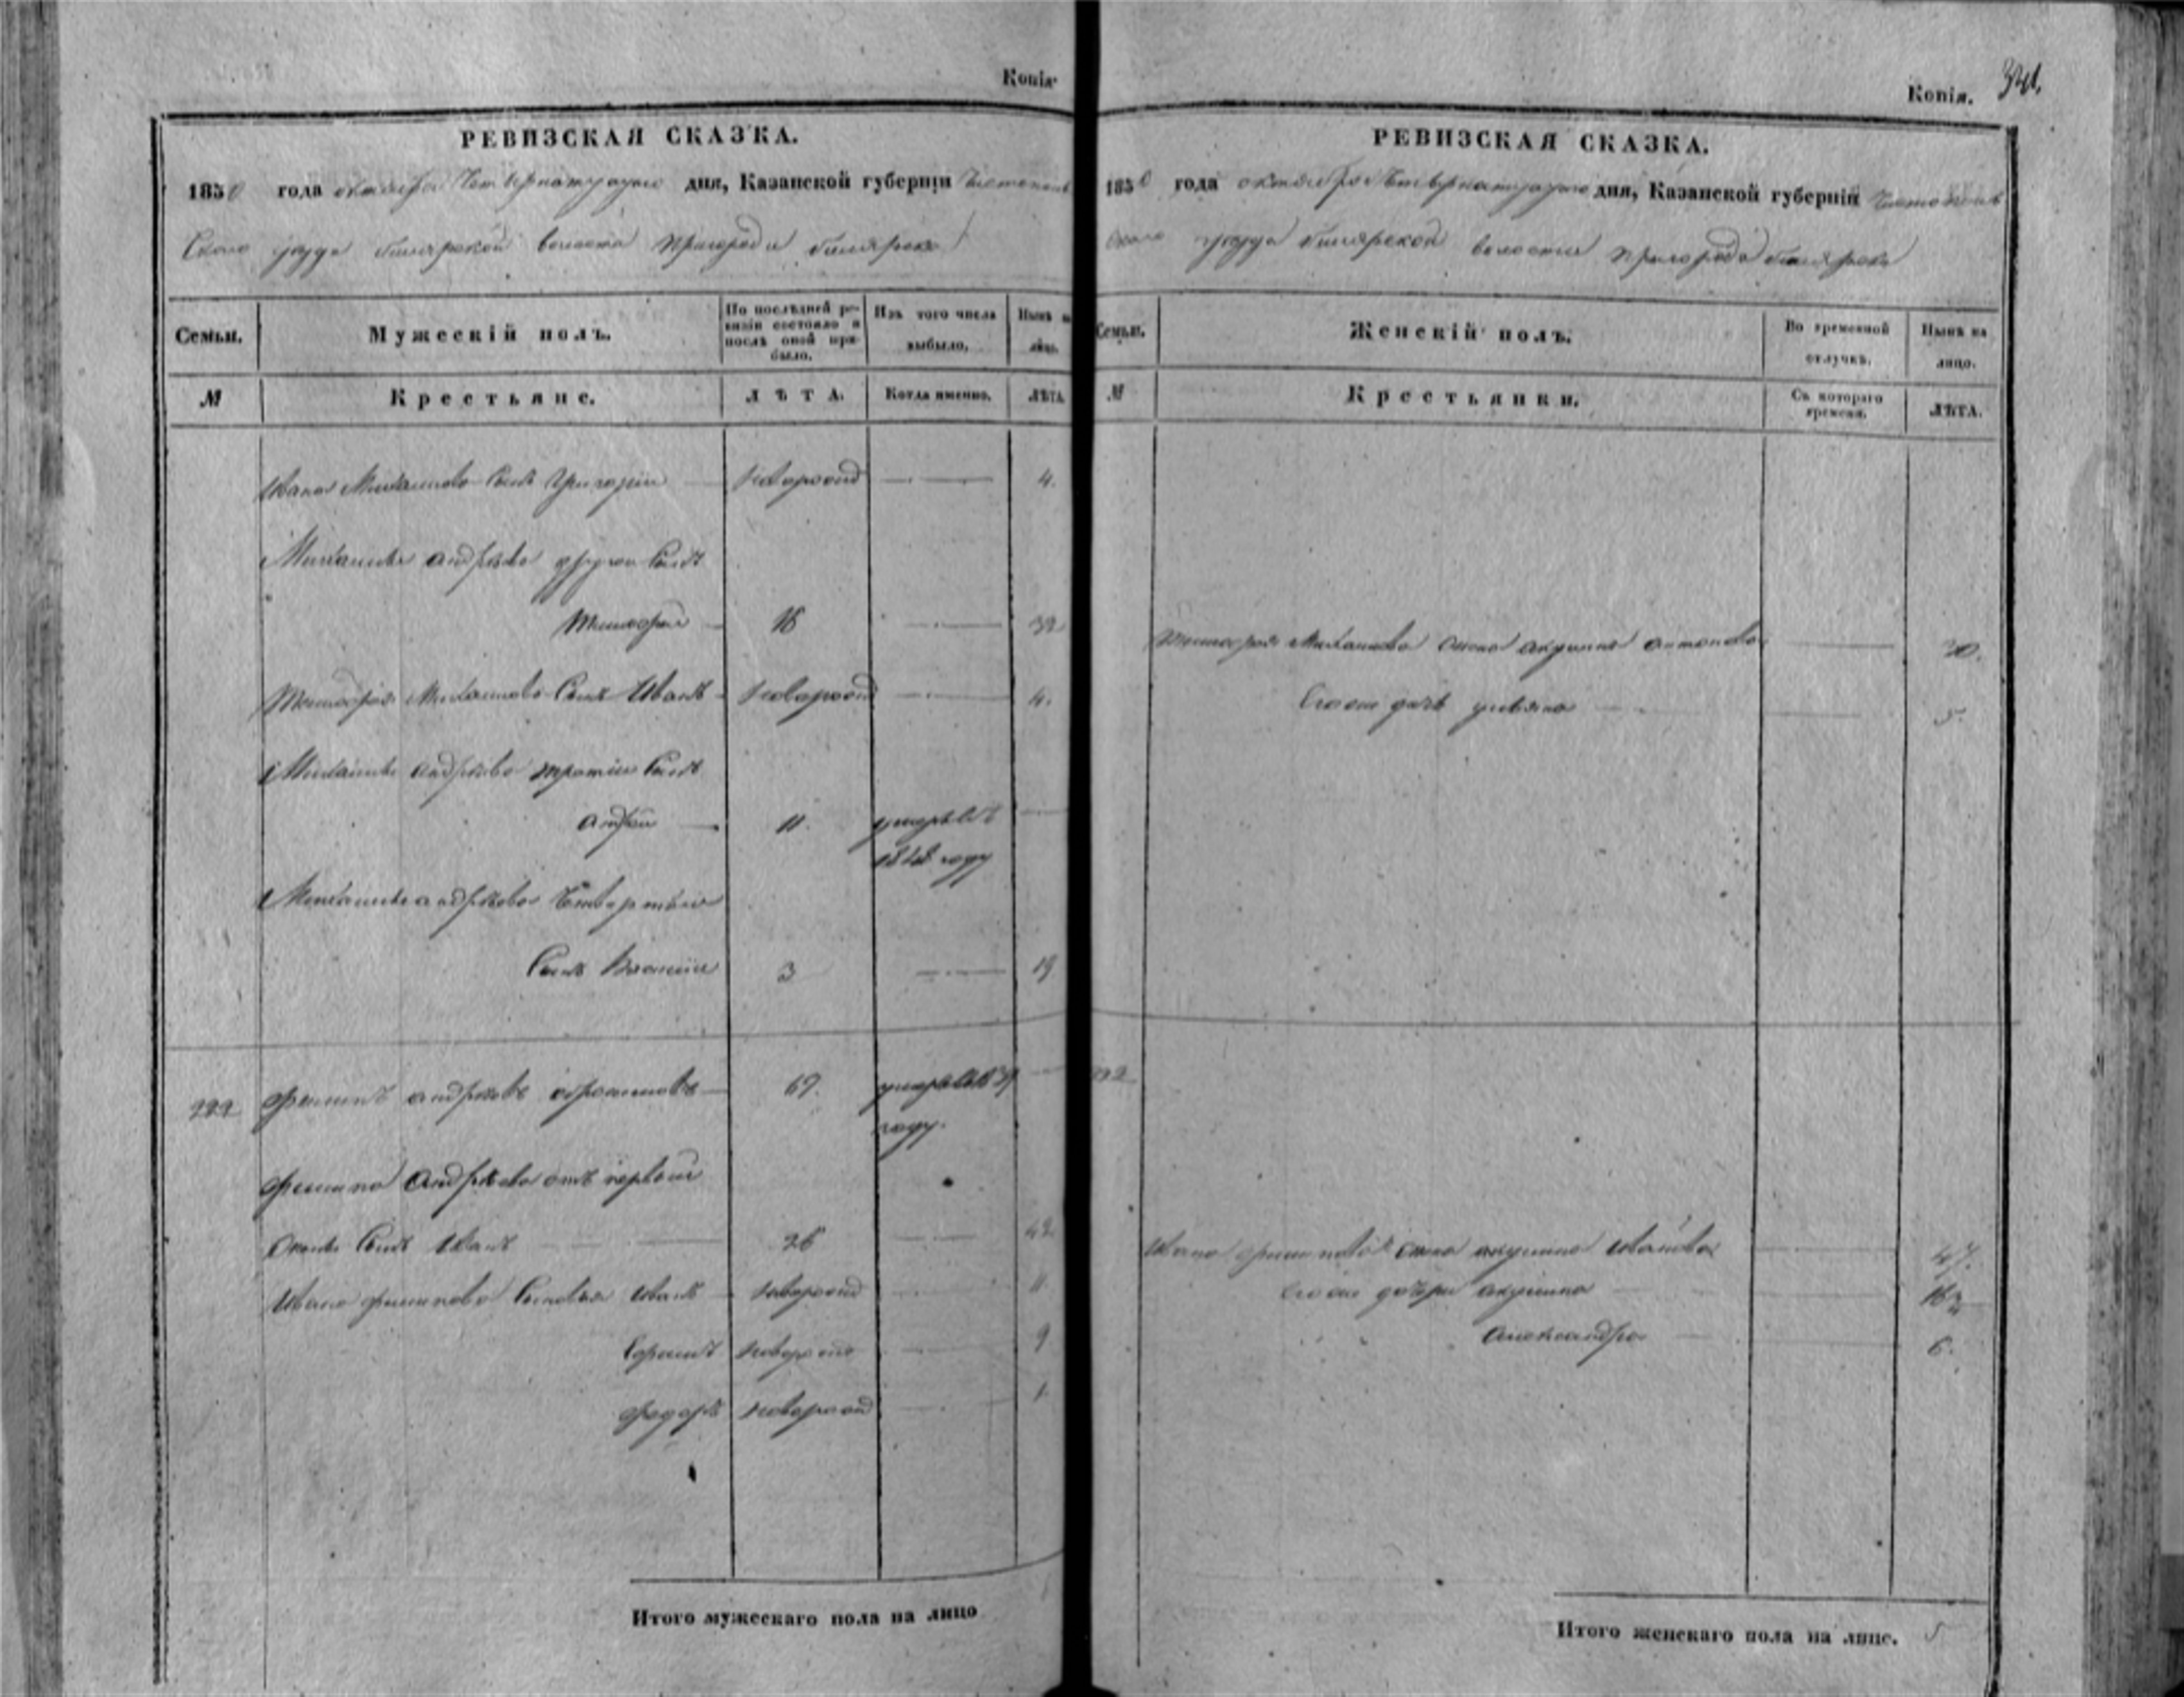 Копія
РЕВИЗСКАЯ СКАЗКА.
1850 года октября Четвернатцатого дня, Казанской губерніи Чистополь
Скаго уѣзда билярской волости пригорода билярска
Семьи.
Мужескій полъ.
По послѣдней ревизіи состояло и послѣ оной прибыло.
Изъ того числа выбыло.
Нынѣ на лицо.
№
Крестьяне.
ЛѢТА.
Когда именно.
ЛѢТА
Ивана Михаилова Сынъ Григорій новорожд 4.
Михаилы андрѣева другой Сынъ
Тимофей 16 32
Тимофея Михаилова Сынъ Иванъ новорожд 4.
Михаилы андрѣева третій Сынъ
андрей 11. умеръ въ
1848 году
Михаилы андрѣева Четвертый
Сынъ 3 19
222 Филипъ андрѣевъ 67. умеръ въ
году.
Филипа андрѣева отъ первой
жены Сынъ Иванъ 26 42
Ивана филипова Сыновья Иванъ новорожд 11
Ефимъ новорожд 9
Федоръ новорожд 1
Итого мужескаго пола на лицо
Копія. 341.
РЕВИЗСКАЯ СКАЗКА.
1850 года октября Четвернатцатого дня, Казанской губерніи Чистополь
Скаго уѣзда билярской волости пригорода билярска
Семьи.
Женскій полъ.
Во временной отлучкѣ.
Нынѣ на лицо.
№
Крестьянки.
Съ котораго времени.
ЛѢТА.
Тимофея Михаилова жена акулина антонова 30.
Его же дочь ульяна 5.
222
Ивана филипова жена акулина Иванова 47.
Его же дочери акулина 16
Александра 6.
Итого женскаго пола на лицо. 5